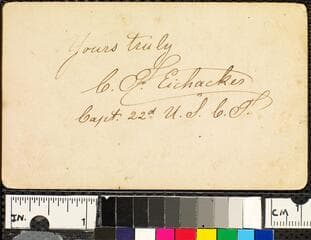 Yours truly
C. F. Eichacker
Capt. 22d U. S. C. T.
IN.
1
CM